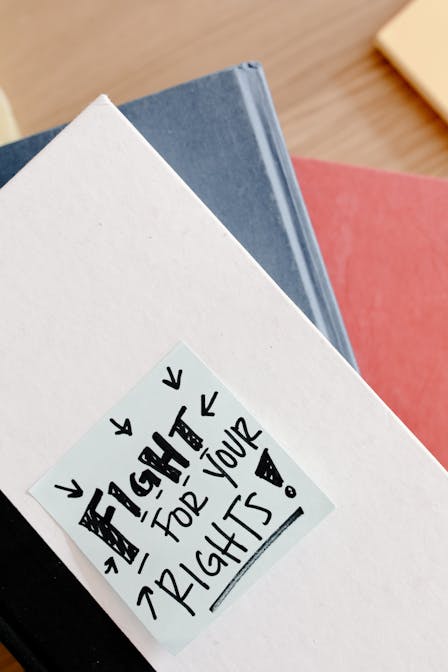 FIGHT
FOR YOUR
RIGHTS!